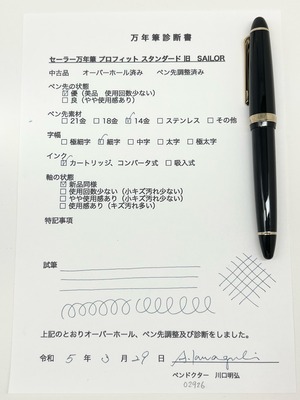 万年筆診断書
セーラー万年筆 プロフィット スタンダード 旧 SAILOR
中古品 オーバーホール済み ペン先調整済み
ペン先の状態
☑ 優（美品 使用回数少ない）
☐ 良（やや使用感あり）
ペン先素材
☐ 21金 ☐ 18金 ☑ 14金 ☐ ステンレス ☐ その他
字幅
☐ 極細字 ☑ 細字 ☐ 中字 ☐ 太字 ☐ 極太字
インク
☑ カートリッジ、コンバータ式 ☐ 吸入式
軸の状態
☑ 新品同様
☐ 使用回数少ない（小キズ汚れ少ない）
☐ やや使用感あり（小キズ汚れ少ない）
☐ 使用感あり（キズ汚れ多い）
特記事項
試筆
上記のとおりオーバーホール、ペン先調整及び診断をしました。
令和 5 年 3 月 29 日
ペンドクター 川口明弘
02926